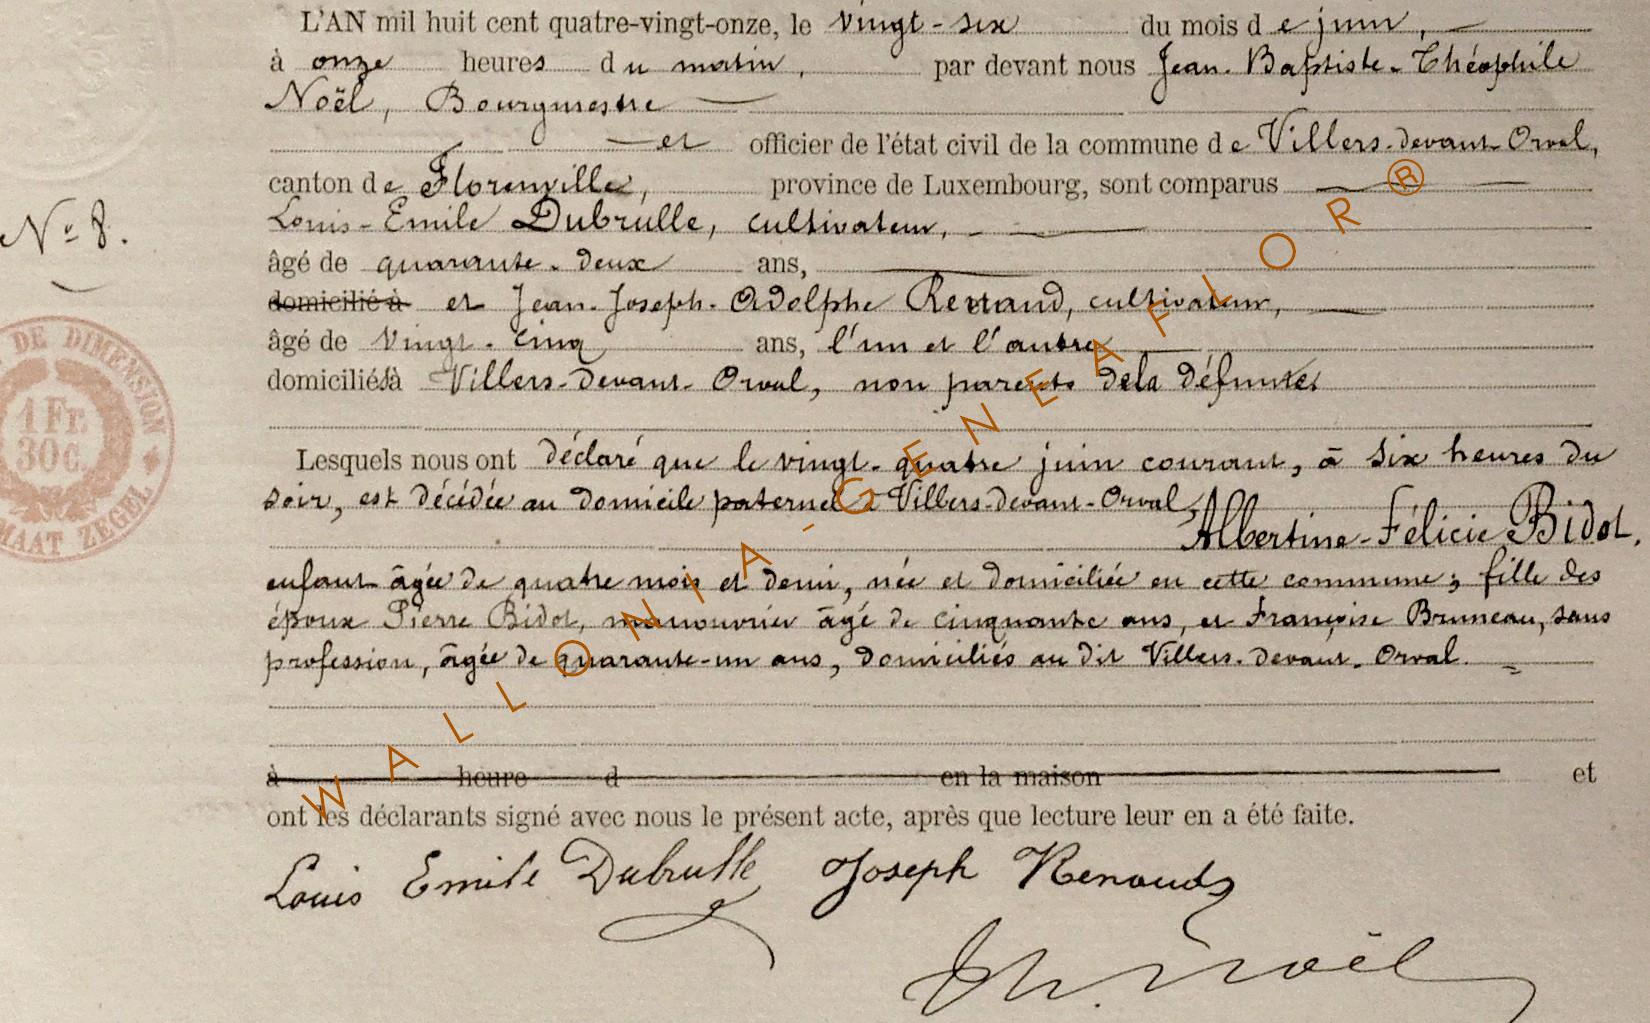 L'AN mil huit cent quatre-vingt-onze, le vingt-six du mois de juin,
à onze heures du matin, par devant nous Jean-Baptiste-Théophile
Noël, Bourgmestre
et officier de l'état civil de la commune de Villers-devant-Orval,
canton de Florenville, province de Luxembourg, sont comparus
N° 8.
Louis-Emile Dubrulle, cultivateur,
âgé de quarante-deux ans,
domicilié à et Jean-Joseph-Adolphe Renaud, cultivateur,
âgé de vingt-cinq ans, l'un et l'autre
domiciliés à Villers-devant-Orval, non parents de la défunte.
DE DIMENSION
1 Fr.
30 C.
MAAT ZEGEL
Lesquels nous ont déclaré que le vingt-quatre juin courant, à six heures du
soir, est décédée au domicile paternel à Villers-devant-Orval,
Albertine-Félicie Bidot,
enfant âgée de quatre mois et demi, née et domiciliée en cette commune; fille des
époux Pierre Bidot, manouvrier âgé de cinquante ans, et Françoise Bruneau, sans
profession, âgée de quarante-un ans, domiciliés au dit Villers-devant-Orval.
à heure d en la maison et
ont les déclarants signé avec nous le présent acte, après que lecture leur en a été faite.
Louis Emile Dubrulle Joseph Renaud
Th. Noël
WALLONIA-GENEAFLOR®